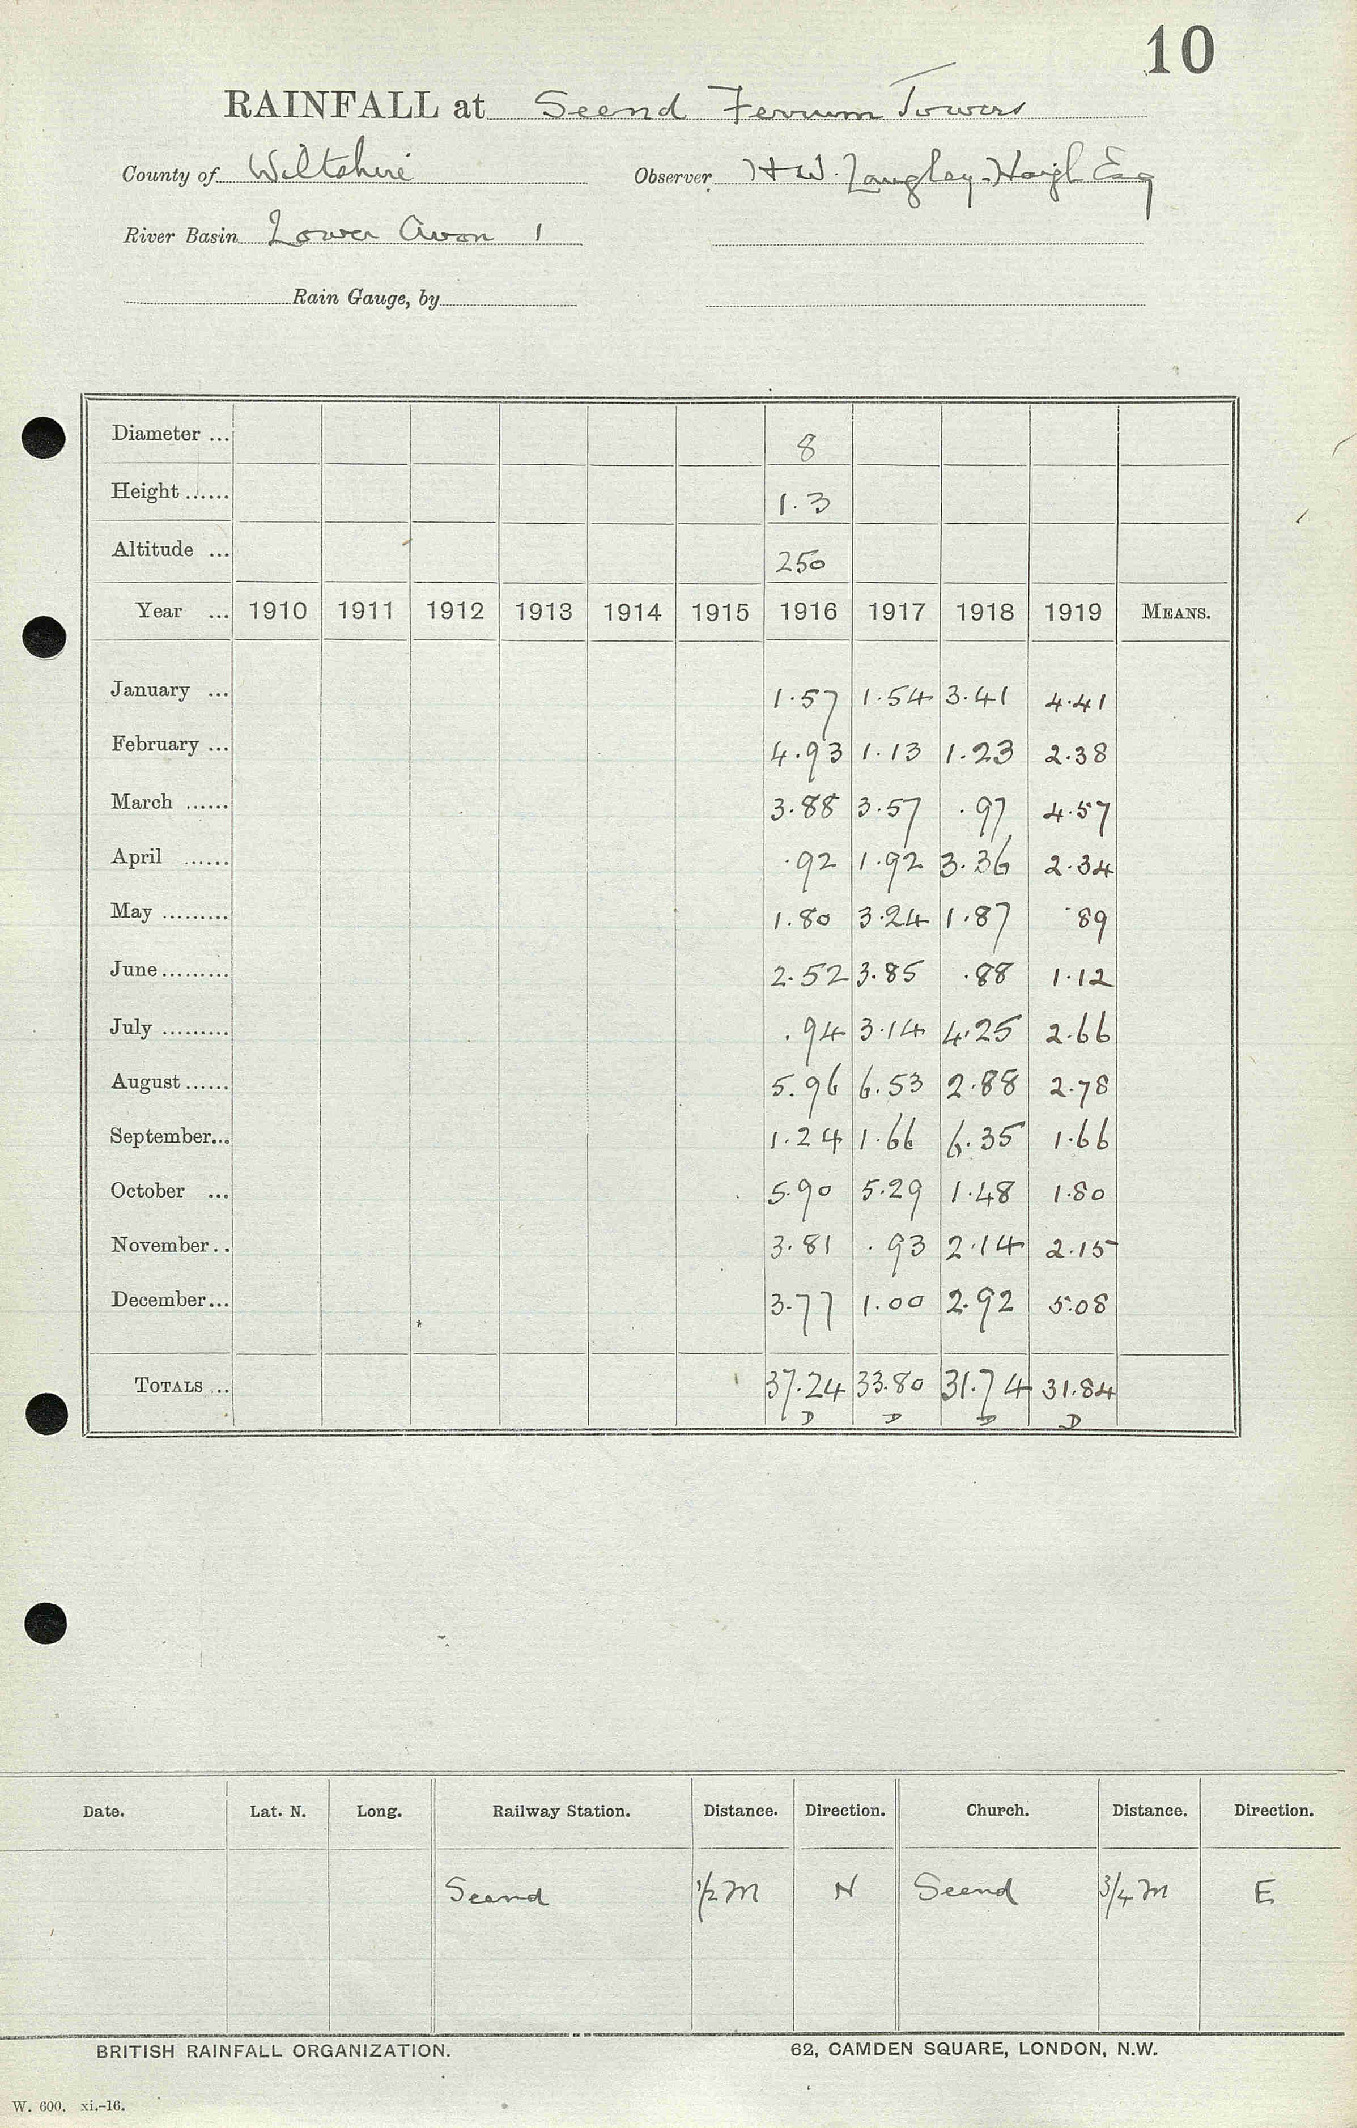 10
RAINFALL at Seend Ferrum Towers
County of Wiltshire Observer H W. Langley-Haigh Esq
River Basin Lower Avon 1
Rain Gauge, by
Diameter ... 8
Height ...... 1.3
Altitude ... 250
Year ... 1910 1911 1912 1913 1914 1915 1916 1917 1918 1919 MEANS.
January ... 1.57 1.54 3.41 4.41
February ... 4.93 1.13 1.23 2.38
March ...... 3.88 3.57 .97 4.57
April ...... .92 1.92 3.36 2.34
May ......... 1.80 3.24 1.87 .89
June ......... 2.52 3.85 .88 1.12
July ......... .94 3.14 4.25 2.66
August ...... 5.96 6.53 2.88 2.78
September... 1.24 1.66 6.35 1.66
October ... 5.90 5.29 1.48 1.80
November.. 3.81 .93 2.14 2.15
December... 3.77 1.00 2.92 5.08
TOTALS ... 37.24 33.80 31.74 31.84
D D D D
Date. Lat. N. Long. Railway Station. Distance. Direction. Church. Distance. Direction.
Seend 1/2 M N Seend 3/4 M E
BRITISH RAINFALL ORGANIZATION. 62, CAMDEN SQUARE, LONDON, N.W.
W. 600. xi.-16.